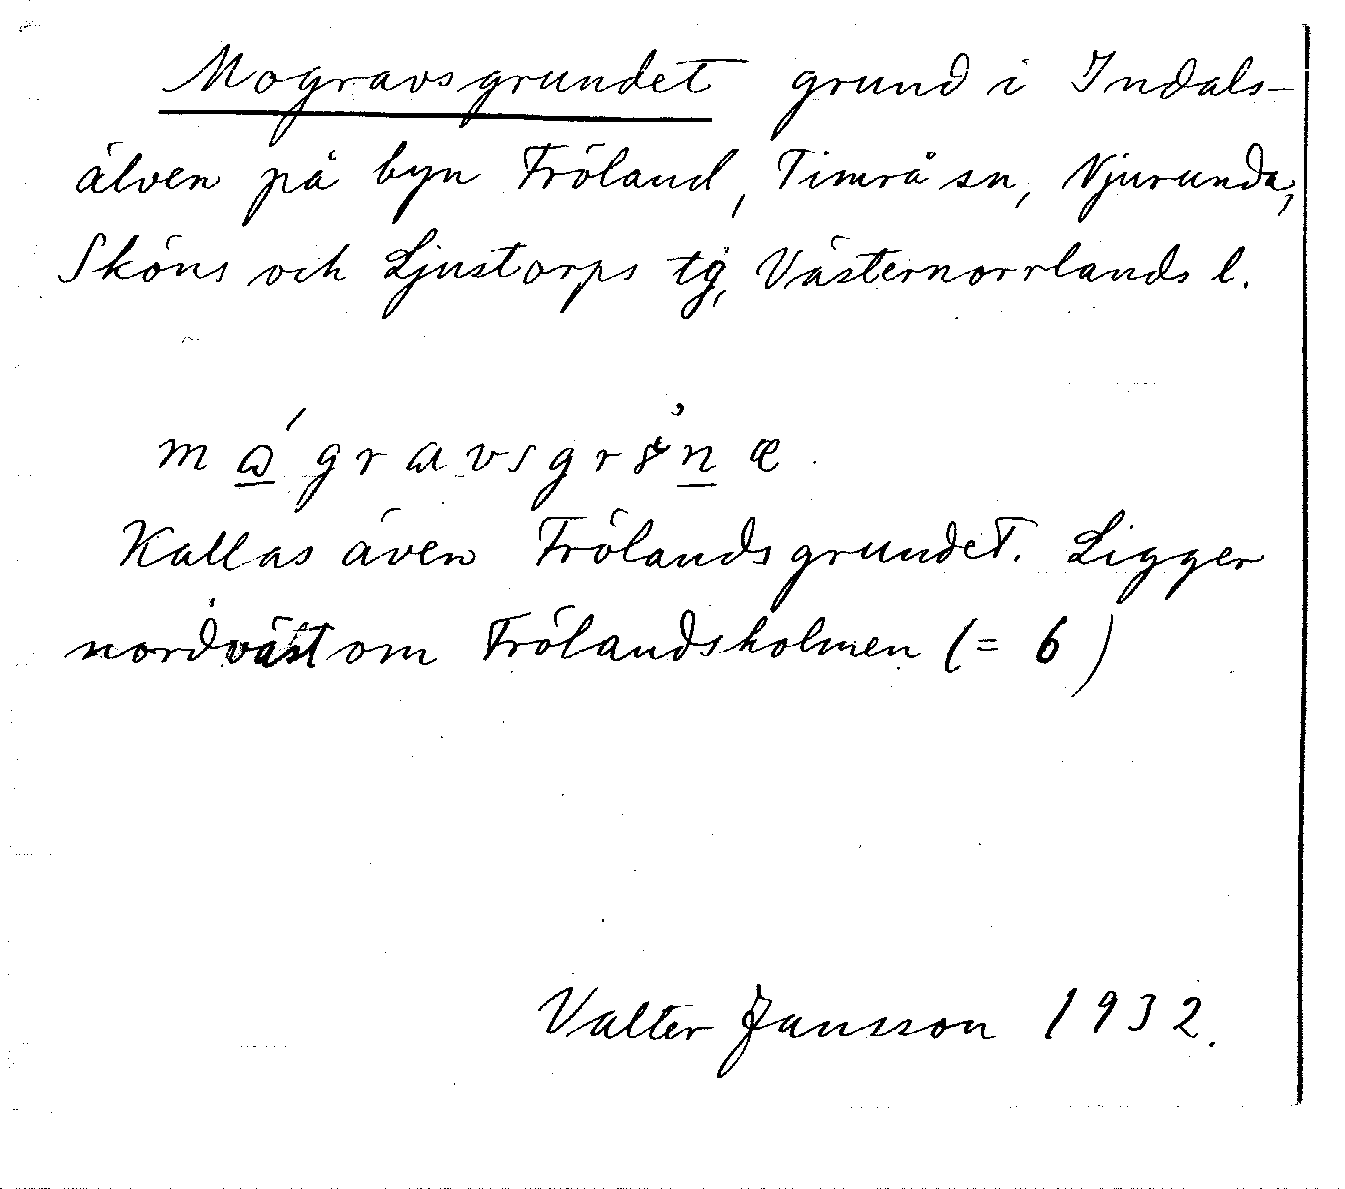 Mogravsgrundet grund i Indals-
älven på byn Fröland, Timrå sn, Njurunda,
Sköns och Ljustorps tg, Västernorrlands l.
Kallas även Frölandsgrundet. Ligger
nordväst om Frölandsholmen (= 6)
Valter Jansson 1932.